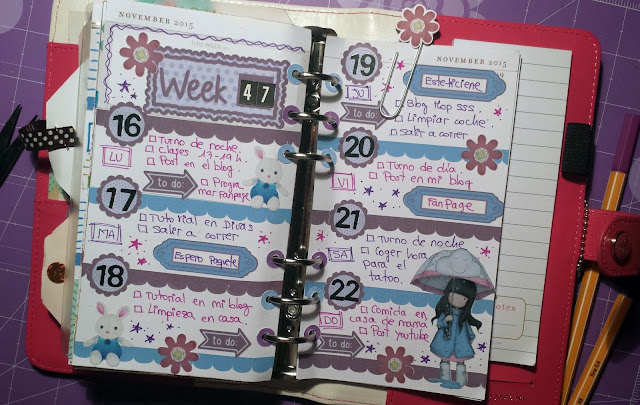 NOVEMBER 2015
Week 47
16
LU
Turno de noche
Clases 17-19 h.
Post en el blog.
to do:
Progra
mar Fanpage
17
MA
Tutorial en Divas
Salir a correr
Espero paquete
18
Tutorial en mi blog
Limpieza en casa
to do:
NOVEMBER 2015
19
JU
Este-ticiene
to do:
Blog Hop SSS
Limpiar coche
Salir a correr
20
VI
Turno de día
Post en mi blog
FanPage
21
SA
Turno de noche
Coger hora
para el
tatoo.
22
DO
Comida en
casa de mamá
Post youtube
to do:
notes